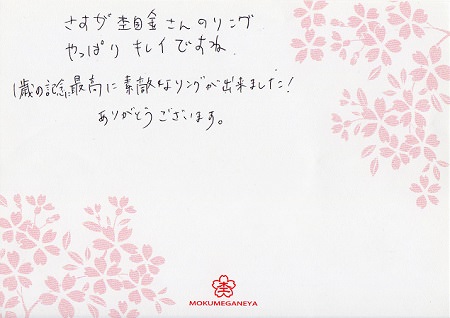 さすが杢目金さんのリング
やっぱりキレイですね
1歳の記念、最高に素敵なリングが出来ました！
ありがとうございます。
杢
MOKUMEGANEYA